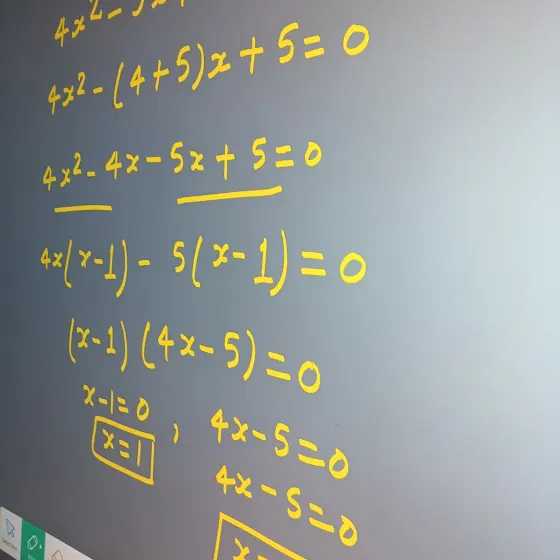 4x² -
4x² - (4+5)x + 5 = 0
4x² - 4x - 5x + 5 = 0
4x(x-1) - 5(x-1) = 0
(x-1) (4x-5) = 0
x-1=0 , 4x-5=0
x=1 4x-5=0
x=